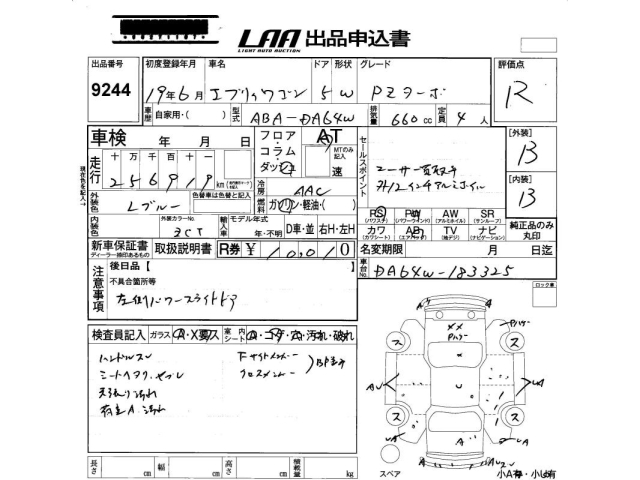 LAA 出品申込書
LIGHT AUTO AUCTION
出品番号 初度登録年月 車名 ドア 形状 グレード 評価点
9244 19年6月 エブリィワゴン 5 W PZターボ R
車歴 自家用・( ) 型式 ABA-DA64W 排気量 660cc 定員 4人
車検 年 月 日 フロア・コラム・ダッシュ AT セールスポイント [外装]
MTのみ記入 B
走行 十万千百十一 速 ユーザー買取車
256919 km 冷房 AAC [内装]
外装色 色替車は色替と記入 燃料 ガソリン・軽油・( ) B
Lブルー PS PW AW SR 純正品のみ丸印
(パワステ) (パワーウインド) (アルミホイル) (サンルーフ)
内装色 外装カラーNo. 輸入車 モデル年式 カワ AB TV ナビ
ZCT 年・不明 D車・並 右H・左H (カワシート) (エアバック) (純デジ) (ナビゲーション)
新車保証書 取扱説明書 R券 ¥ 10010 名変期限 月 日迄
ディーラー検印あるもの
車台No. DA64W-183325
注意事項 後日品【 ロック車
不具合箇所等
左側パワースライドドア
検査員記入 ガラス A・X要ス 車内シート A・コゲ・穴・汚れ・破れ
ハンドルスレ 下サイドメンバー
シートヘタリ、ヤブレ クロスメンバー
天張り汚れ
荷室A、汚れ
長さ cm 幅 cm 高さ cm 積載量 kg
スペア 小A有・小U有